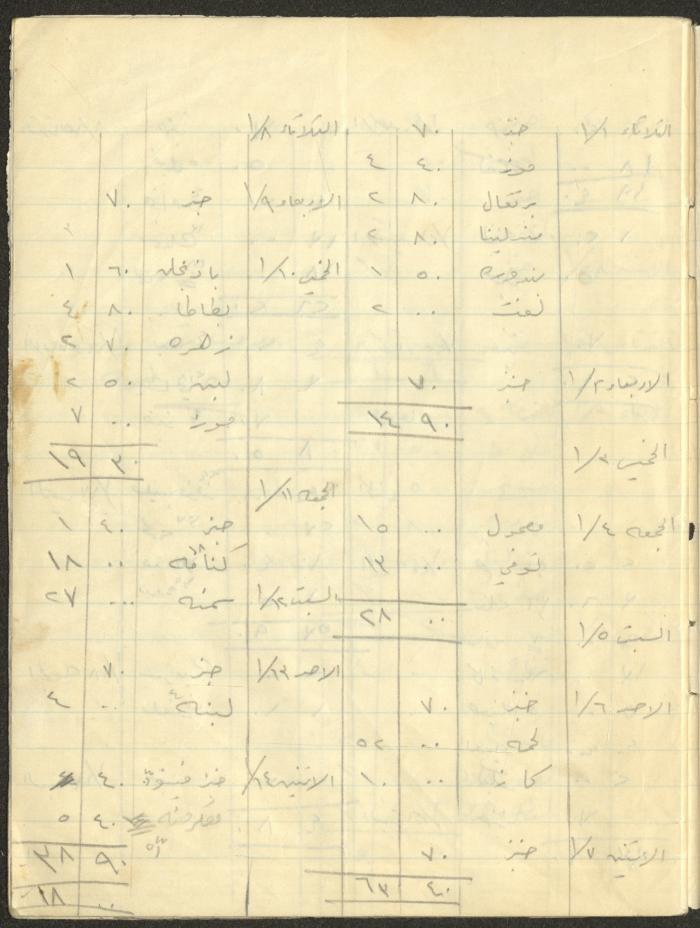 الثلاثاء ١/١ خبز ٧٠
موز ٤٠ ٤
برتقال ٨٠ ٢
مندلينا ٨٠ ٢
بندوره ٥٠ ١
لفت ٠٠ ٢
الاربعاء ١/٢ خبز ٧٠
٩٠ ١٤
الخميس ١/٣
الجمعه ١/٤ معمول ٠٠ ١٥
توفي ٠٠ ١٣
٠٠ ٢٨
السبت ١/٥
الاحد ١/٦ خبز ٧٠
لحمه ٠٠ ٥٢
كاز ٠٠ ١٠
الاثنين ١/٧ خبز ٧٠
٤٠ ٦٣
الثلاثاء ١/٨
الاربعاء ١/٩ خبز ٧٠
الخميس ١/١٠ باذنجان ٦٠ ١
بطاطا ٨٠ ٤
زهره ٧٠ ٢
لبن ٥٠ ٢
موز ٠٠ ٧
٣٠ ١٩
الجمعه ١/١١
خبز ٤٠ ١
كنافه ٠٠ ١٨
السبت ١/١٢ سمنه ٠٠ ٢٧
الاحد ١/١٣ خبز ٧٠
لبنه ٠٠ ٤
الاثنين ١/١٤ خبز ٤٠
٤٠ ٥
٩٠ ٣٨
٠٠ ١٨